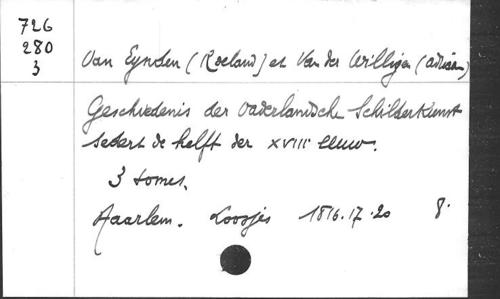 726
280
3
Van Eynden (Roeland) et Van der Willigen (adriaan)
Geschiedenis der vaderlandsche Schilderkunst
sedert de helft der XVIII eeuw.
3 tomes.
Haarlem. Loosjes 1816.17.20 8.